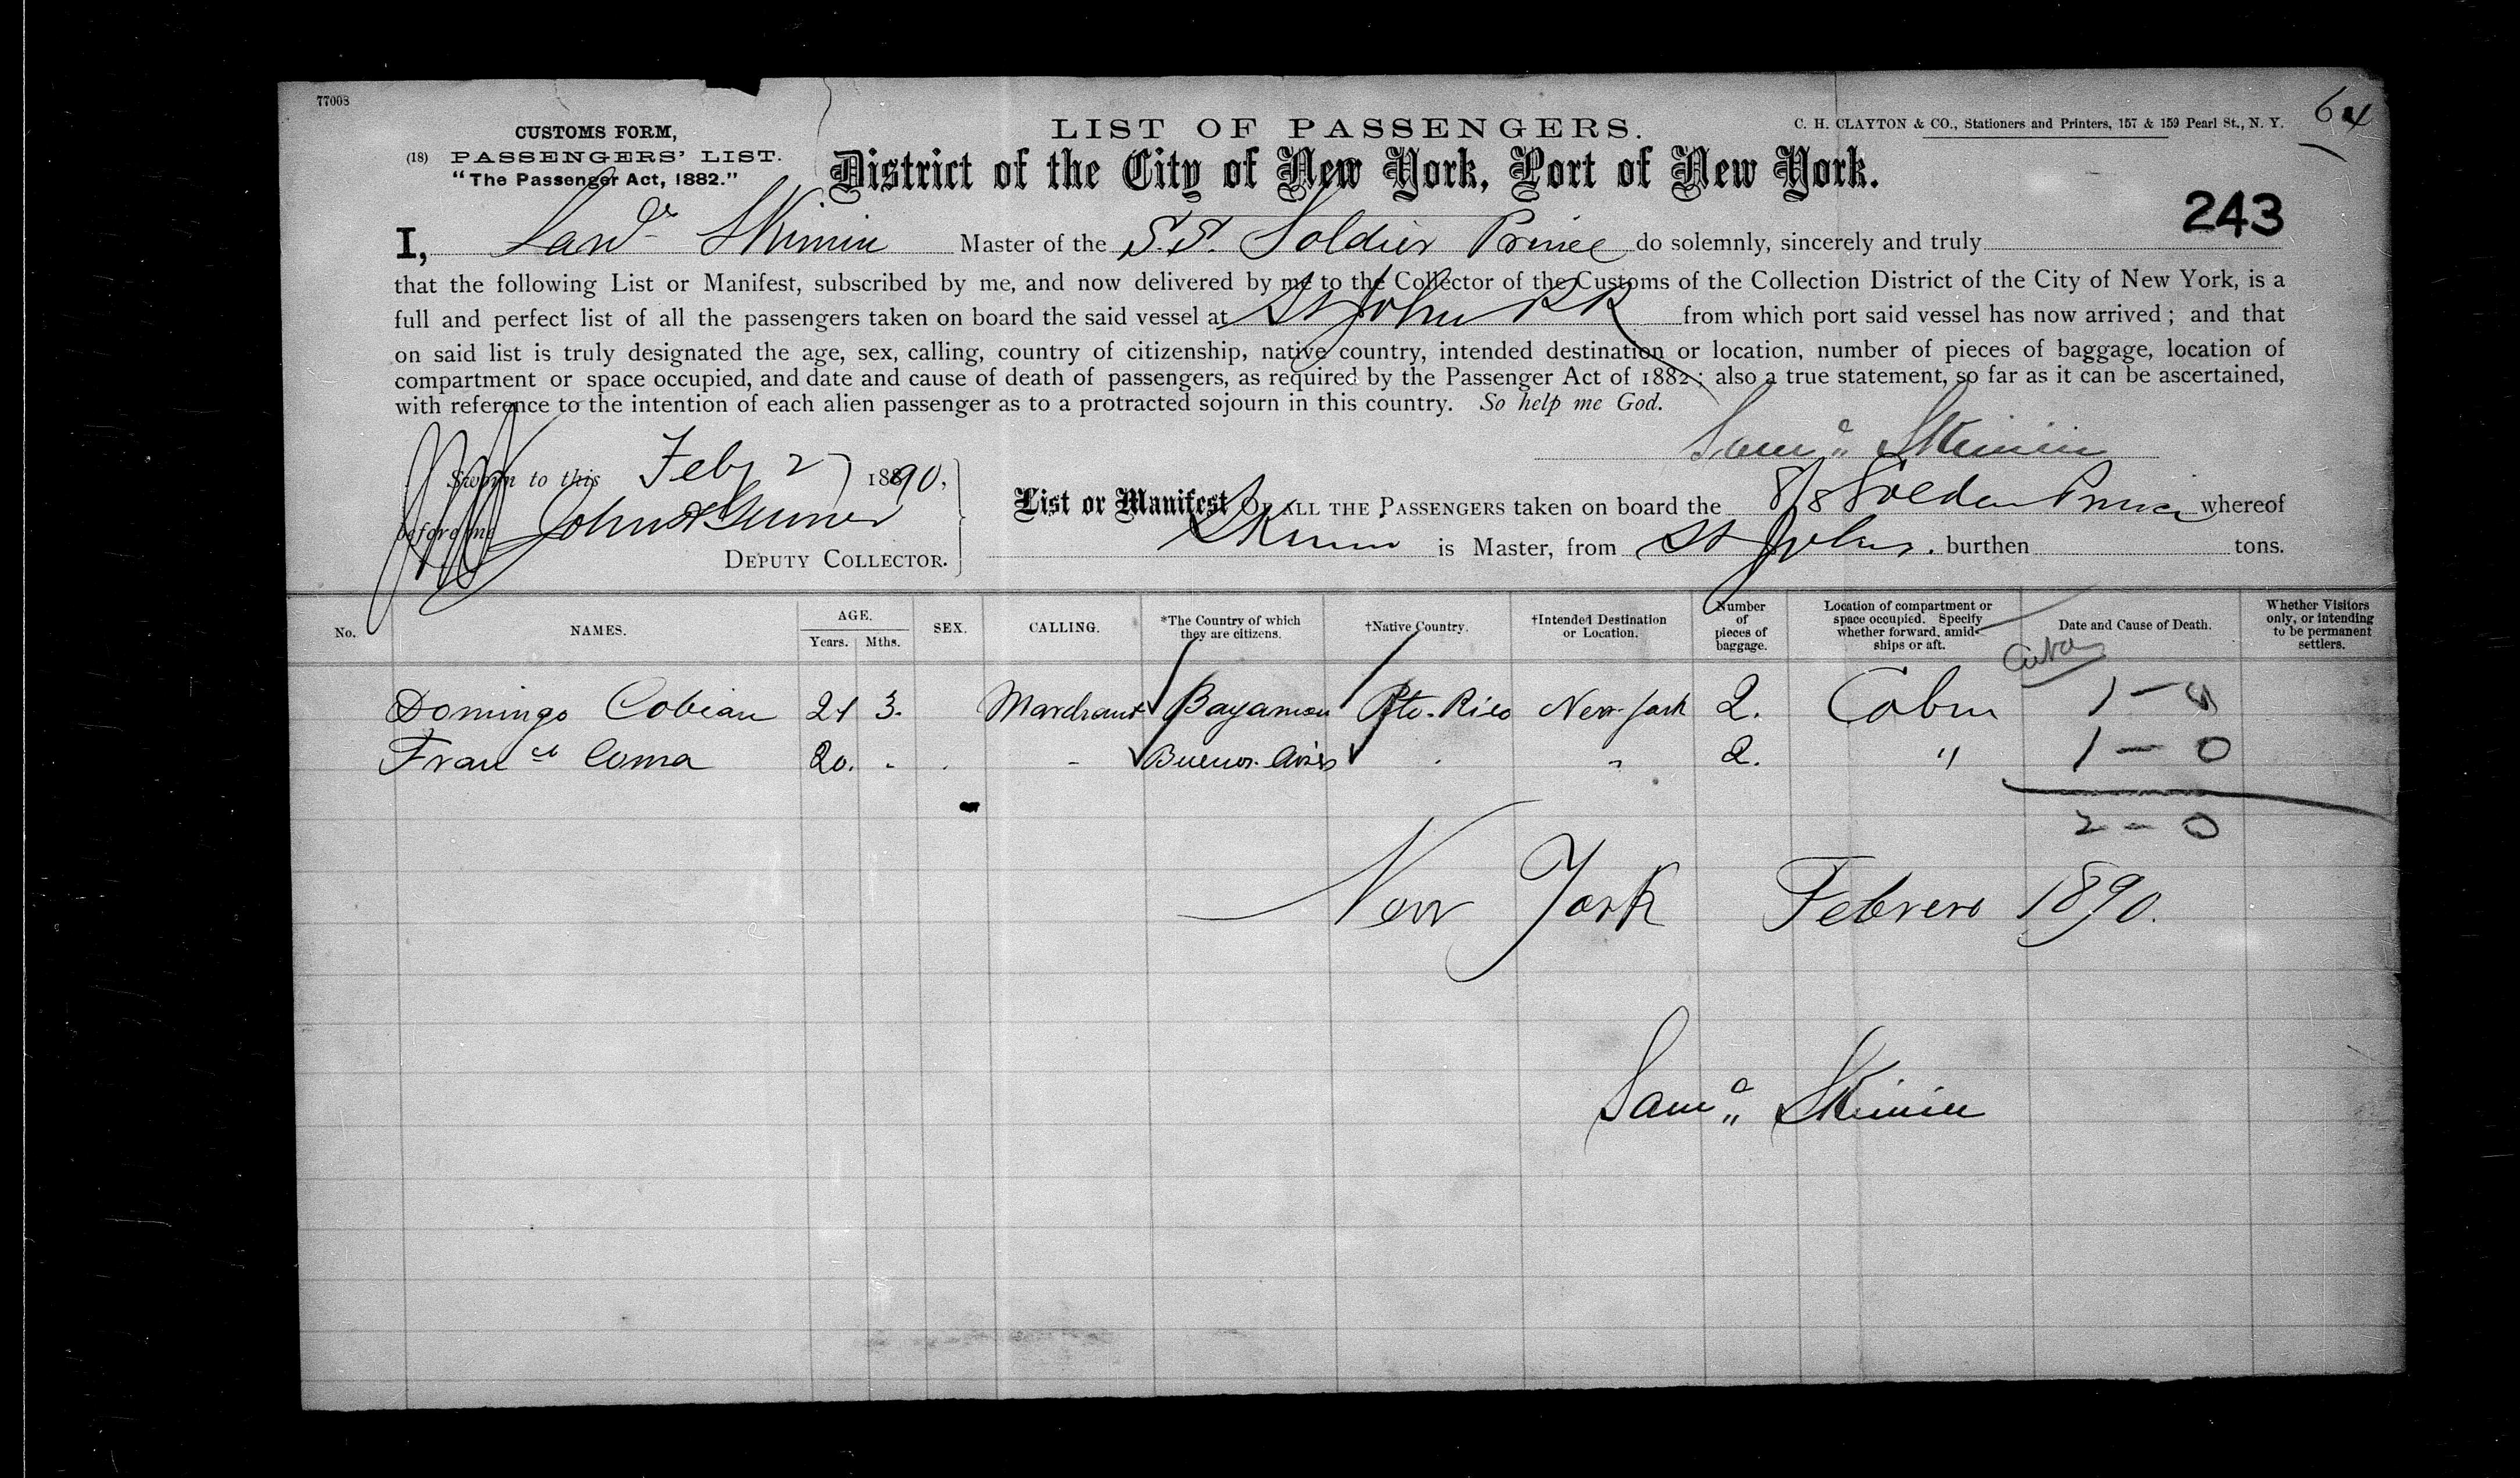 77008
CUSTOMS FORM,
(18) PASSENGERS' LIST.
"The Passenger Act, 1882."
LIST OF PASSENGERS.
C. H. CLAYTON & CO., Stationers and Printers, 157 & 159 Pearl St., N. Y.
64
District of the City of New York, Port of New York.
243
I, Skimin Master of the S.S. Soldier Prince do solemnly, sincerely and truly
that the following List or Manifest, subscribed by me, and now delivered by me to the Collector of the Customs of the Collection District of the City of New York, is a
full and perfect list of all the passengers taken on board the said vessel at St John from which port said vessel has now arrived; and that
on said list is truly designated the age, sex, calling, country of citizenship, native country, intended destination or location, number of pieces of baggage, location of
compartment or space occupied, and date and cause of death of passengers, as required by the Passenger Act of 1882; also a true statement, so far as it can be ascertained,
with reference to the intention of each alien passenger as to a protracted sojourn in this country. So help me God.
Saml Skimin
Sworn to this Feby 27 1890,
before me John
DEPUTY COLLECTOR.
List or Manifest OF ALL THE PASSENGERS taken on board the S/S Soldier Prince whereof
Skimin is Master, from St Johns. burthen tons.
No. NAMES. AGE. Years. Mths. SEX. CALLING. *The Country of which they are citizens. †Native Country. †Intended Destination or Location. Number of pieces of baggage. Location of compartment or space occupied. Specify whether forward, amidships or aft. Date and Cause of Death. Whether Visitors only, or intending to be permanent settlers.
Cuba
Domingo Cobian 21 3. Marchant Bayamon Pto. Rico New-York 2. Cabin 1 - 0
Franco Coma 20. - . - Buenos Aires . " 2. " 1 - 0
2 - 0
New York Febrero 1890.
Saml Skimin